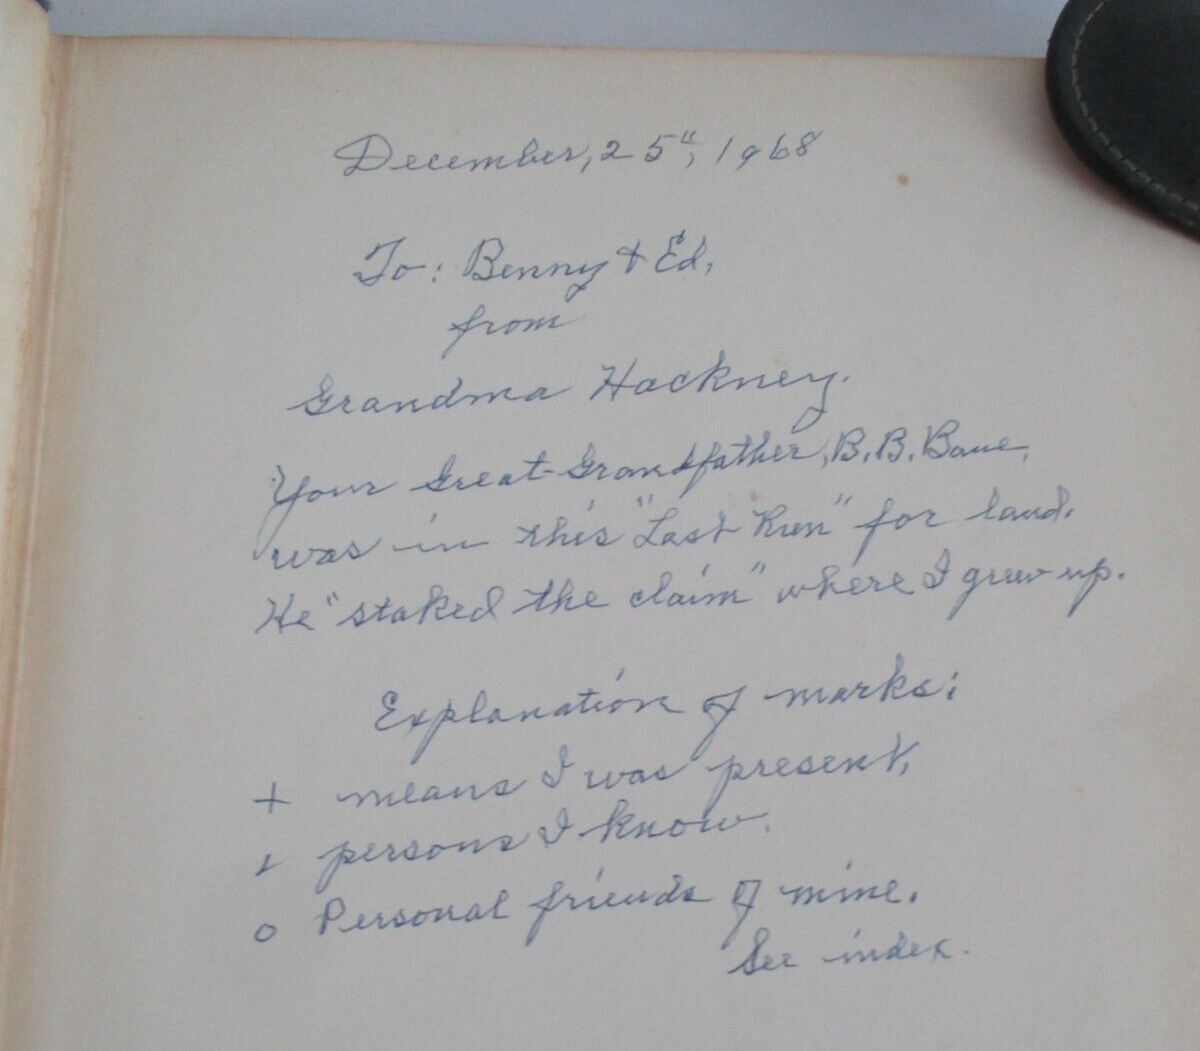 December, 25", 1968
To: Benny + Ed,
from
Grandma Hackney.
Your Great-Grandfather, B. B. Bane,
was in this "Last Run" for land.
He "staked the claim" where I grew up.
Explanation of marks:
+ means I was present,
persons I know.
o Personal friends of mine.
See index.